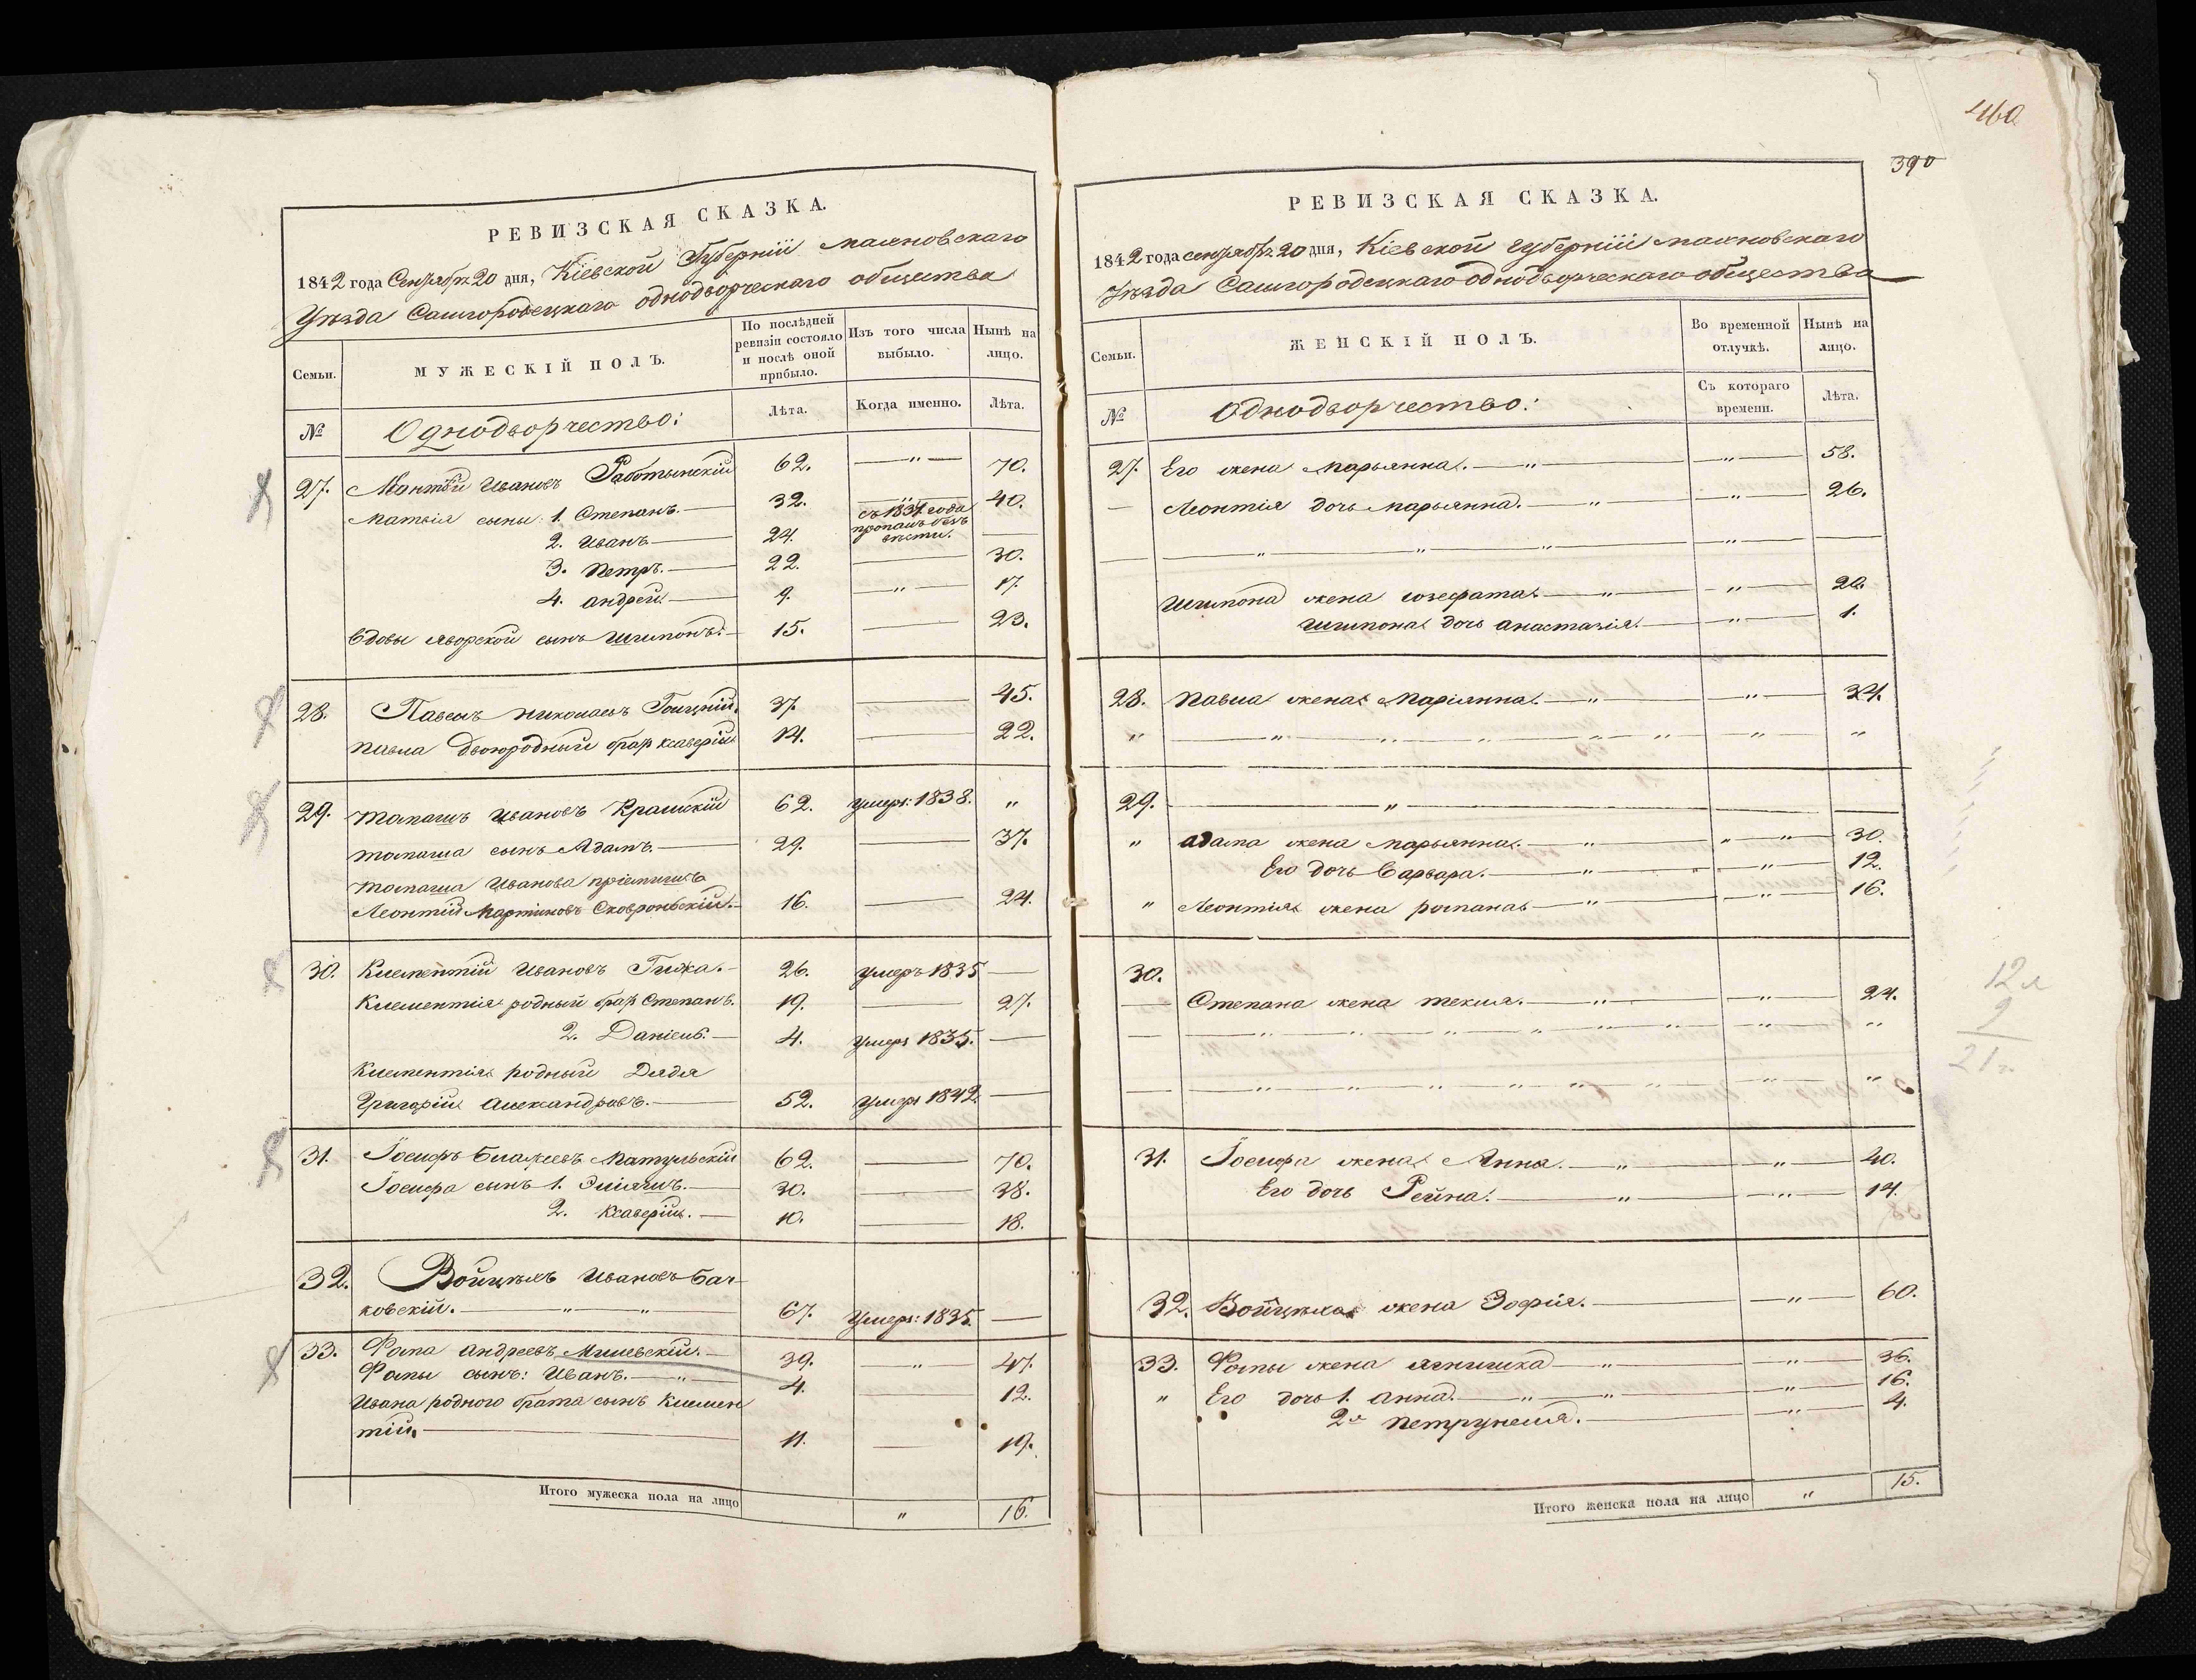 460
390
РЕВИЗСКАЯ СКАЗКА.
1842 года Сентября 20 дня, Кіевской Губерніи Махновскаго
Уѣзда Самгородецкаго однодворческаго общества
Семьи.
МУЖЕСКІЙ ПОЛЪ.
По послѣдней ревизіи состояло и послѣ оной прибыло.
Изъ того числа выбыло.
Нынѣ на лицо.
№
Однодворчество:
Лѣта.
Когда именно.
Лѣта.
27. Ивановъ Работынскій 62. — " — 70.
Матвія сыны: 1. Степанъ. — 32. 40.
2. Иванъ. — 24. съ 1834 года пропалъ безъ вѣсти. —
3. Петръ. — 22. — 30.
4. Андрей — 9. — " — 17.
Вдовы Яворской сынъ Шимонъ: — 15. — 23.
28. Павелъ Николаевъ 37. — 45.
Павла двоюродный брат Ксаверій 14. — 22.
29. Томашъ Ивановъ 62. умеръ: 1838. "
Томаша сынъ Адамъ. — 29. — 37.
Томаша Иванова пріемышъ
Леонтій Мартиновъ Сковронскій. — 16. — 24.
30. Клементій Ивановъ Гижа. — 26. умеръ 1835 —
Клементія родный брат Степанъ. 19. — 27.
2. Даніель. — 4. умеръ 1835. —
Клементія родный Дядя
Григорій Александровъ. — 52. умеръ 1842. —
31. Іосифъ Блажеевъ Матульскій 62. — 70.
Іосифа сынъ 1. 30. — 38.
2. Ксаверій. — 10. — 18.
32. Войцѣхъ Ивановъ Бач-
ковскій. — " — " — 67. Умеръ: 1835. —
33. Фома Андреевъ Милевскій. — 39. — " — 47.
Фомы сынъ: Иванъ. — " — 4. — 12.
Ивана родного брата сынъ Клемен
тій. — 11. — 19.
Итого мужеска пола на лицо " 16.
РЕВИЗСКАЯ СКАЗКА.
1842 года сентября 20 дня, Кіевской губерніи Махновскаго
Уѣзда Самгородецкаго однодворческаго общества
Семьи.
ЖЕНСКІЙ ПОЛЪ.
Во временной отлучкѣ.
Нынѣ на лицо.
№
Однодворчество:
Съ котораго времени.
Лѣта.
27. Его жена Марьянна. — " — " — 58.
— Леонтія дочь Марьянна. — " — " — 26.
— " — " — " — " —
Шимона жена Юзефата — " — " — 20.
Шимона дочь Анастазія. — " — 1.
28. Павла жена Маріянна. — " — " — 34.
" — " — " — " — " — " — " — "
29. — " —
" Адама жена Марьянна. — " — " — " — 30.
Его дочь Варвара. — " — " — 12.
" Леонтія жена Романа — " — " — 16.
30.
— Степана жена Текля. — " — " — 24.
— " — " — " — " — " — " — " — "
— " — " — " — " — " — " — " — "
31. Іосифа жена Анна. — " — " — 40.
Его дочь Рейна. — " — " — 14.
32. Войцѣха жена Зофія. — " — 60.
33. Фомы жена Агнишка — " — " — 36.
" Его дочь 1. Анна. — " — " — " — 16.
2я Петрунеля. — " — 4.
Итого женска пола на лицо " 15.
12
9
21